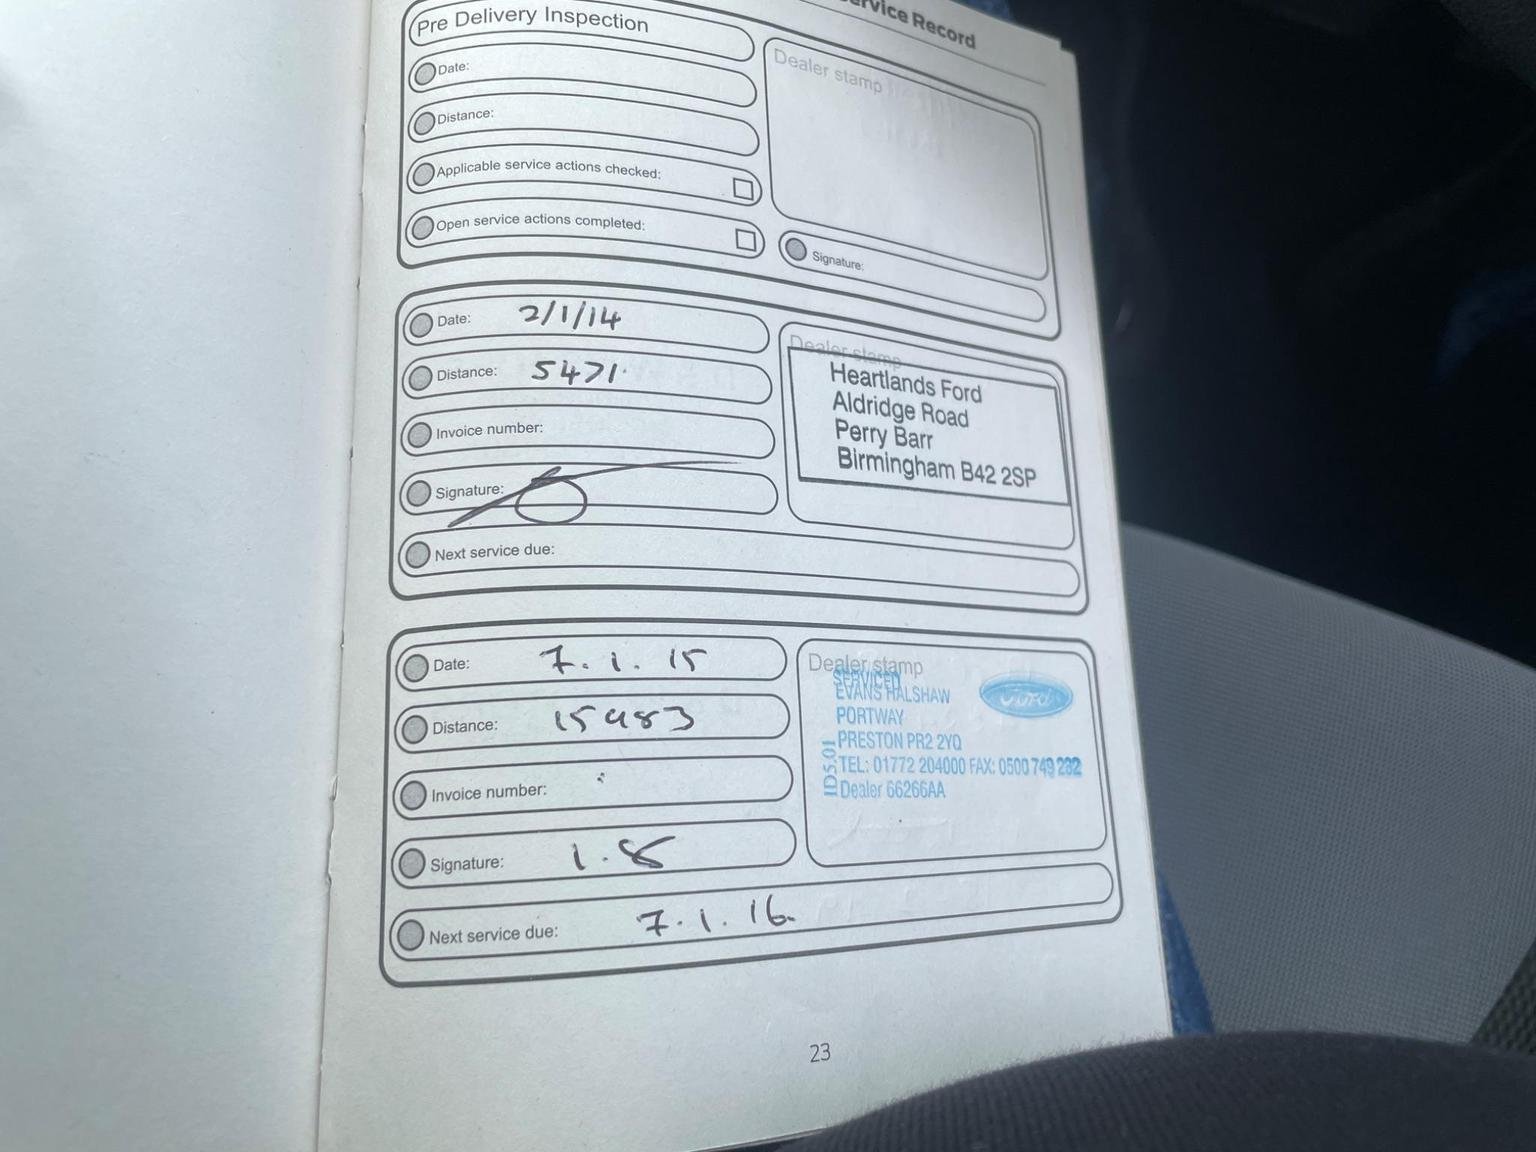 Service Record
Pre Delivery Inspection
Date:
Distance:
Applicable service actions checked:
Open service actions completed:
Dealer stamp
Signature:
Date: 2/1/14
Distance: 5471
Invoice number:
Signature:
Next service due:
Dealer stamp
Heartlands Ford
Aldridge Road
Perry Barr
Birmingham B42 2SP
Date: 7.1.15
Distance: 15983
Invoice number:
Signature: 1.8
Next service due: 7.1.16.
Dealer stamp
SERVICED
EVANS HALSHAW
PORTWAY
PRESTON PR2 2YQ
TEL: 01772 204000 FAX: 0500 749 232
Dealer 66266AA
IDS.01
Ford
23